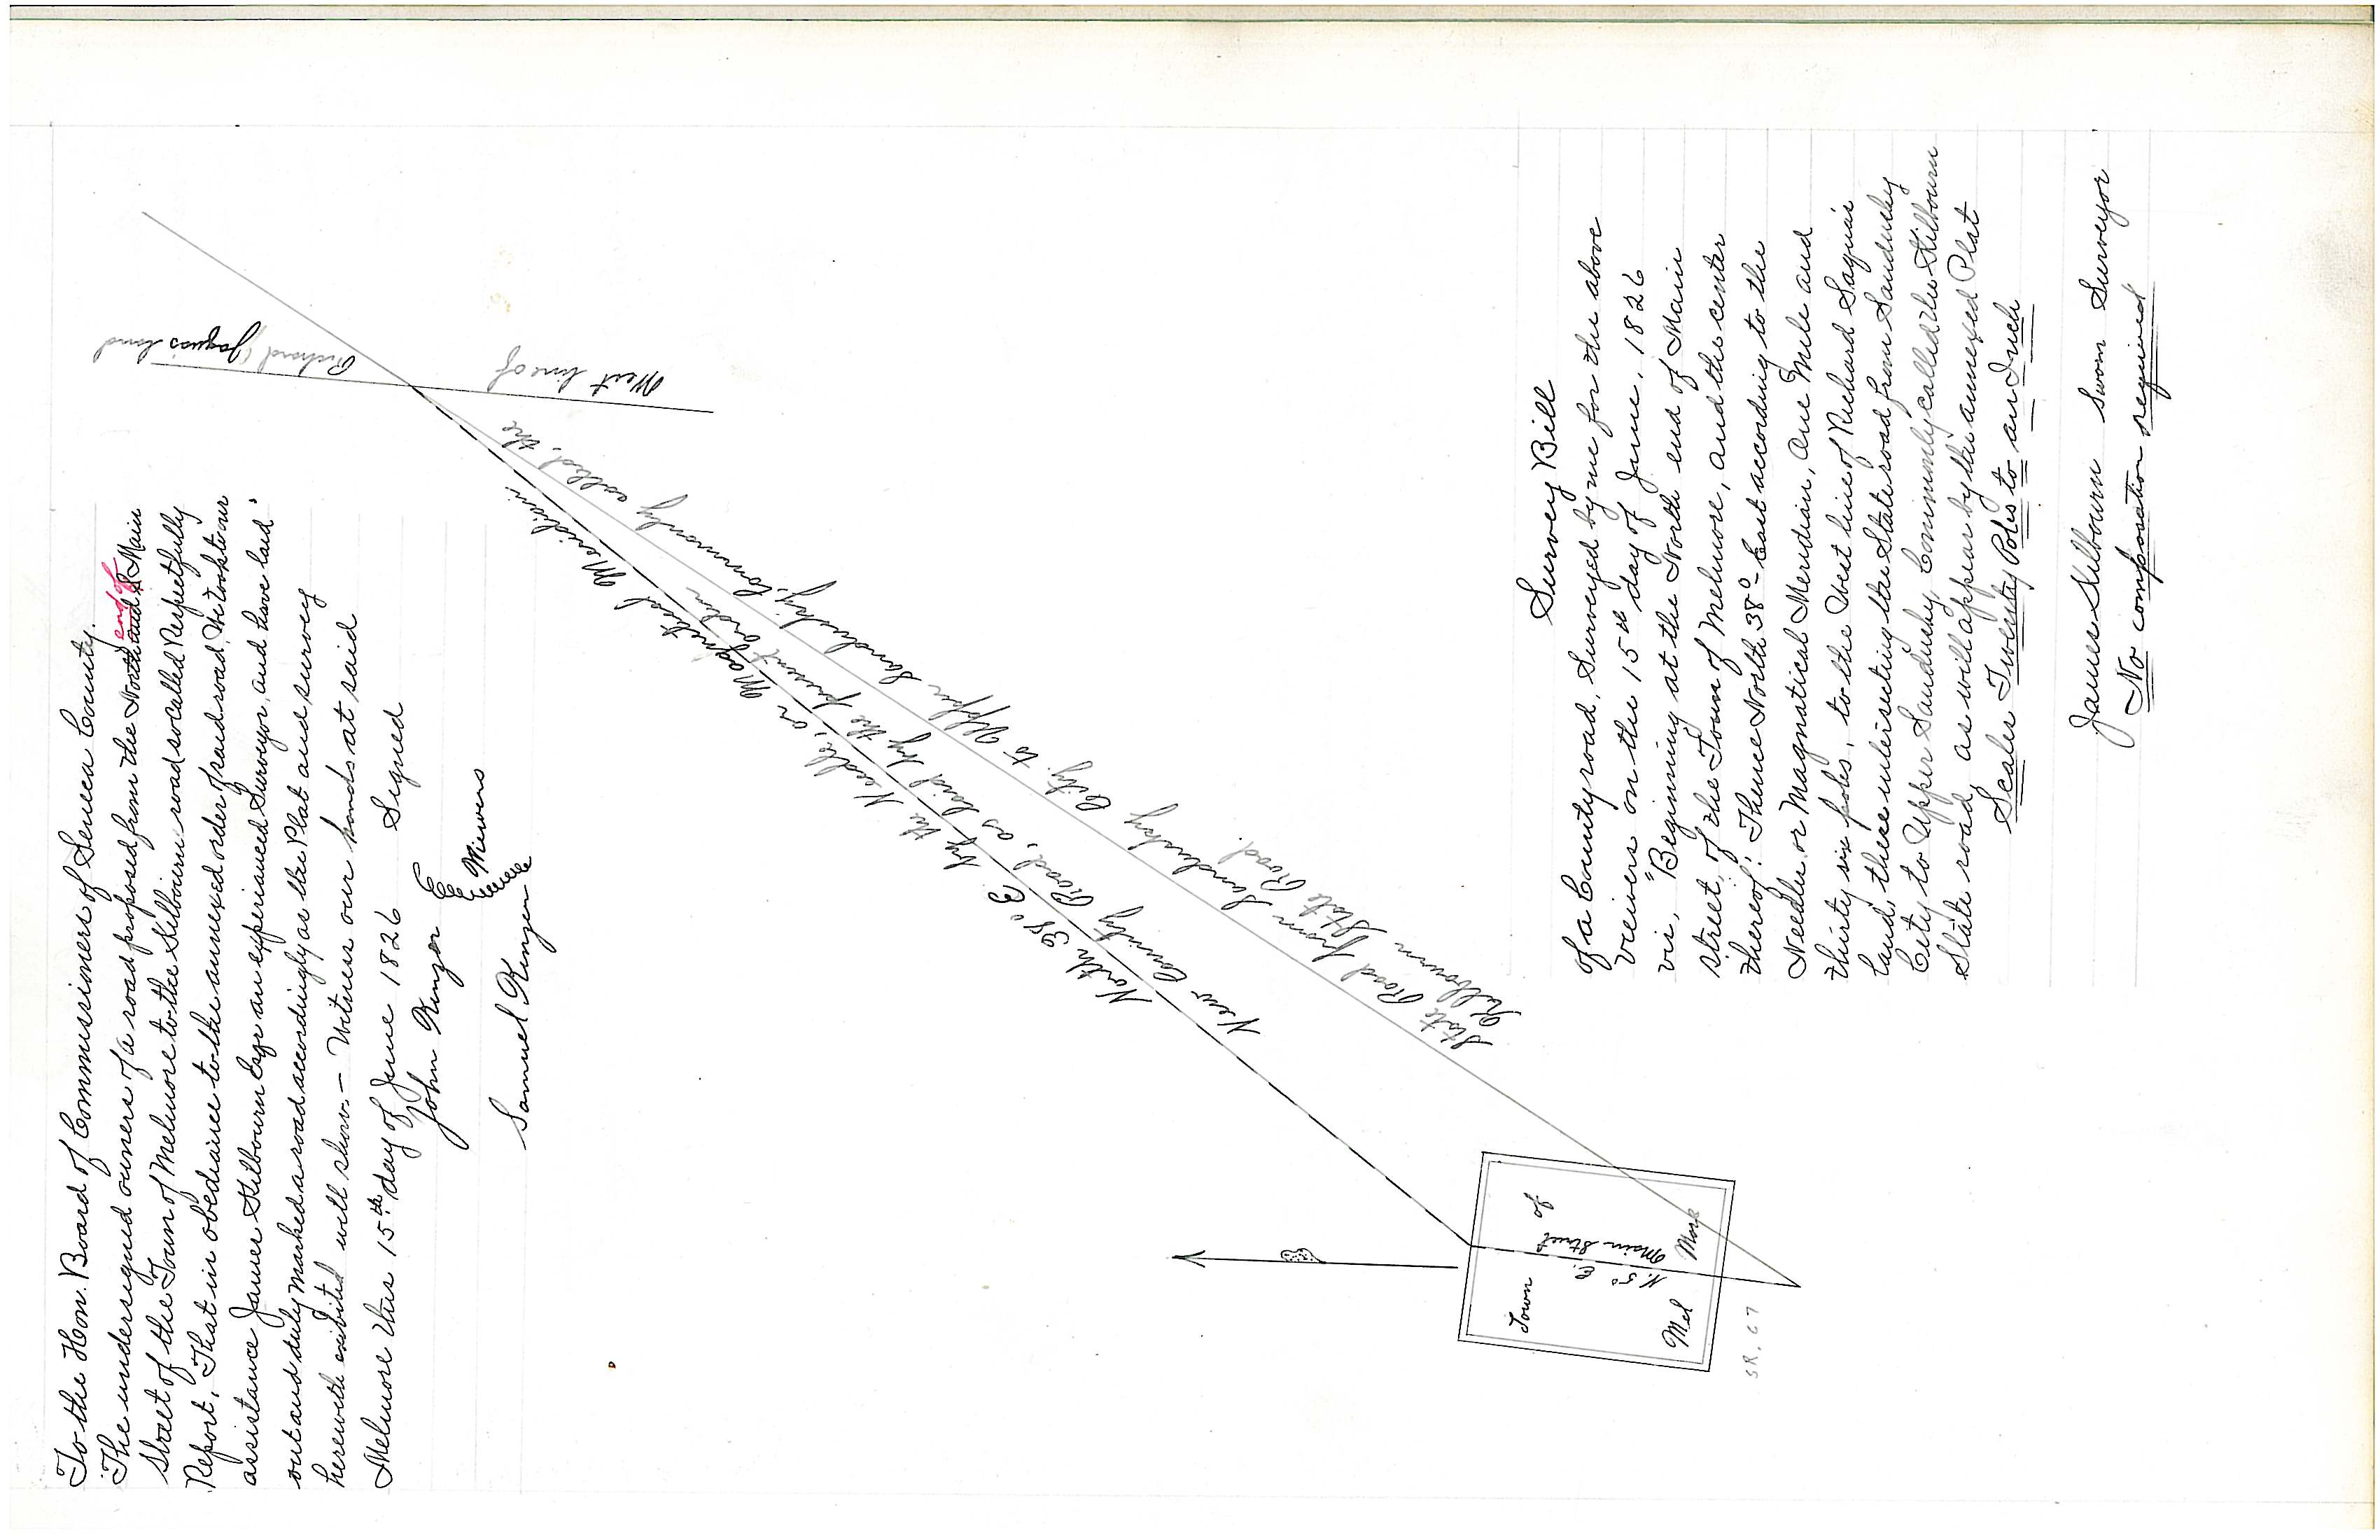 To the Hon. Board of Commissioners of Seneca County.
The undersigned owners of a road proposed from the North end of Main
Street of the Town of Melmore to the Kilbourn road so called Respectfully
Report, That in obediance to the annexed order of said road, We took to our
assistance James Kilbourn Esqr an experianced Surveyor, and have laid
out and duly marked a road accordingly as the Plat and survey
herewith exibited will show. — Witness our hands at said
Melmore this 15th day of June 1826 Signed
John Kinzer
Viewers
Samuel Kinzer
Richard Jaquas land
West line of
North 38° E. by the Needle, or Magnetical Meridian.
New County Road, as laid by the present order
State Road from Sandusky City, to Upper Sandusky, Commonly called, the
Kilbourn State Road
Town of
Main Street
N. 5° E.
Mel More
SR. 67
Survey Bill
of a County road, Surveyed by me for the above
viewers on the 15th day of June, 1826
vis, "Beginning at the North end of Main
street, of the Town of Melmore, and the center
thereof: Thence North 38° East according to the
Needle or Magnatical Meridian, One Mile and
thirty six poles, to the West line of Richard Jaquas
land, there intersecting the State road from Sandusky
City to Upper Sandusky, Commonly called the Kilbourn
State road, as will appear by the annexed Plat
Scales Twenty Poles to an Inch
James Kilbourn Sworn Surveyor
No compensation required